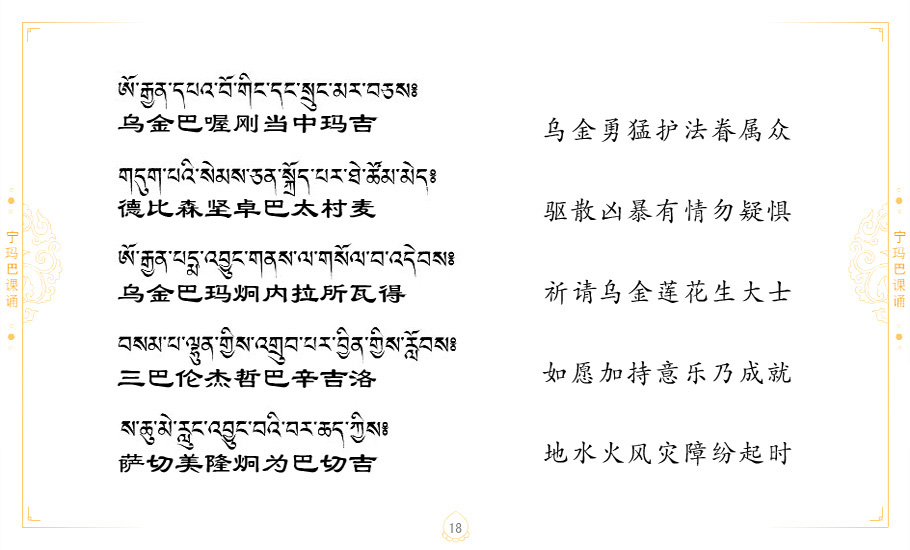 ཨོ་རྒྱན་དཔའ་བོ་གིང་དང་སྲུང་མར་བཅས༔
乌金巴喔刚当中玛吉
乌金勇猛护法眷属众
གདུག་པའི་སེམས་ཅན་སྐྲོད་པར་ཐེ་ཚོམ་མེད༔
德比森坚卓巴太村麦
驱散凶暴有情勿疑惧
ཨོ་རྒྱན་པདྨ་འབྱུང་གནས་ལ་གསོལ་བ་འདེབས༔
乌金巴玛炯内拉所瓦得
祈请乌金莲花生大士
བསམ་པ་ལྷུན་གྱིས་འགྲུབ་པར་བྱིན་གྱིས་རློབས༔
三巴伦杰哲巴辛吉洛
如愿加持意乐乃成就
ས་ཆུ་མེ་རླུང་འབྱུང་བའི་བར་ཆད་ཀྱིས༔
萨切美隆炯为巴切吉
地水火风灾障纷起时
宁玛巴课诵
宁玛巴课诵
18